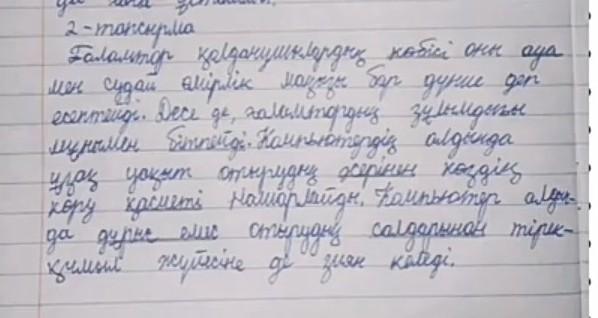 2-тапсырма
Ғаламтор қолданушылардың көбісі оны ауа
мен судай өмірлік маңызы бар дүние деп
есептейді. Десе де, ғаламтордың зұлымдығы
мұнымен бітпейді. Компьютердің алдында
ұзақ уақыт отырудың әсерінен көздің
көру қасметі нашарлайды. Компьютер алдын-
да дұрыс емес отырудың салдарынан тірек-
қимыл жүйесіне де зиян келеді.